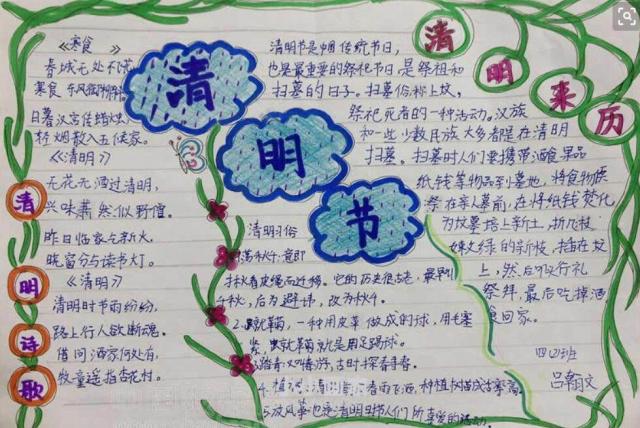 《寒食》
春城无处不飞
寒食东风御柳斜
日暮汉宫传蜡烛
轻烟散入五侯家。
《清明》
无花无酒过清明,
兴味萧然似野僧。
昨日临家乞新火,
晓窗分与读书灯。
《清明》
清明时节雨纷纷,
路上行人欲断魂。
借问酒家何处有,
牧童遥指杏花村。
清
明
诗
歌
清
明
节
清
明
来
历
清明节是中国传统节日,
也是最重要的祭祀节日是祭祖和
扫墓的日子。扫墓俗称上坟,
祭祀死者的一种活动。汉族
和一些少数民族大多都是在清明
扫墓。扫墓时人们要携带酒食果品
纸钱等物品到墓地,将食物供
祭在亲人墓前,在将纸钱焚化,
为坟墓培上新土,折几枝
嫩绿的新枝,插在坟
上,然后叩头行礼
祭拜,最后吃掉酒
食回家。
清明习俗
1.荡秋千,意即
揪着皮绳而迁移。它的历史很古老,最早叫
千秋,后为避讳,改为秋千。
2.蹴鞠,一种用皮革做成的球,用毛塞
紧,蹴鞠就是用足踢球。
3.踏青又叫春游,古时探春寻春。
4.植树,清明前后春雨飞洒,种植树苗成活率高。
5.放风筝也是清明日节人们所喜爱的活动。
四(2)班
吕翰文